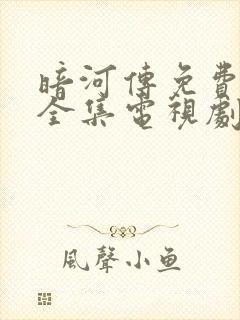 暗河傳免費
全集電視劇
風聲小魚